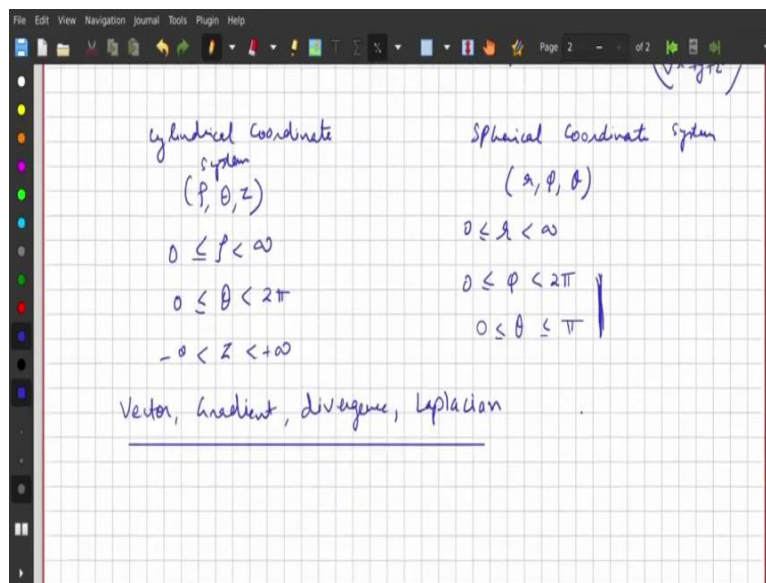 File Edit View Navigation Journal Tools Plugin Help
Page 2 of 2
Cylindrical Coordinate
System
(ρ, θ, z)
0 ≤ ρ < ∞
0 ≤ θ < 2π
-∞ < z < +∞
Spherical Coordinate System
(r, φ, θ)
0 ≤ r < ∞
0 ≤ φ < 2π
0 ≤ θ ≤ π
Vector, Gradient, divergence, Laplacian